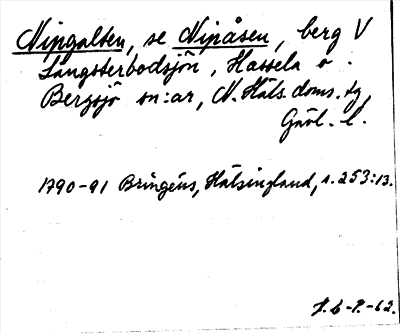 Nipgalten, se Nipåsen, berg V
Långsterbodsjön, Hassela o.
Bergsjö sn:ar, N. Häls. doms. tg,
Gävl. l.
1790-91 Bringéus, Hälsingland, s. 253:13.